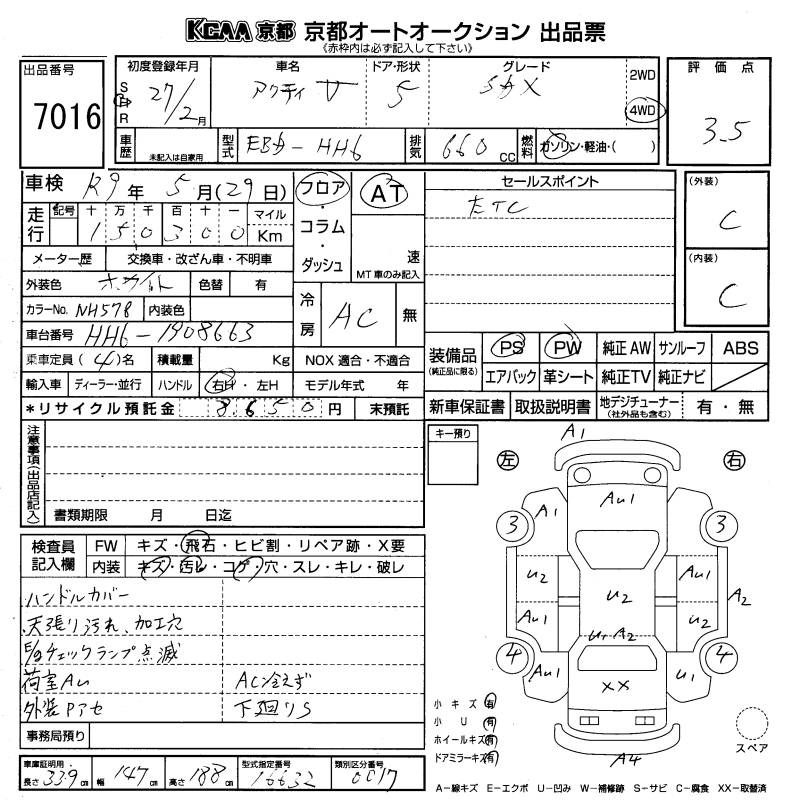 KCAA 京都 京都オートオークション 出品票
《赤枠内は必ず記入して下さい》
出品番号
7016
初度登録年月 車名 ドア・形状 グレード
S H R 27/2月 アクティ V 5 SDX 2WD 4WD
車歴 未記入は自家用 型式 EBD-HH6 排気 660cc 燃料 ガソリン・軽油・( )
評価点
3.5
車検 R9年 5月(29日) フロア・コラム・ダッシュ AT 速 MT車のみ記入
走行 記号 十 万 千 百 十 一 マイル
150300 Km
メーター歴 交換車・改ざん車・不明車
外装色 ホワイト 色替 有
カラーNo. NH578 内装色
冷房 AC 無
車台番号 HH6-1908663
乗車定員 (4)名 積載量 Kg NOX 適合・不適合
輸入車 ディーラー・並行 ハンドル 右H・左H モデル年式 年
*リサイクル預託金 8,650円 未預託
セールスポイント
ETC
(外装)
C
(内装)
C
装備品 (純正品に限る) PS PW 純正AW サンルーフ ABS
エアバック 革シート 純正TV 純正ナビ
新車保証書 取扱説明書 地デジチューナー (社外品も含む) 有・無
注意事項(出品店記入)
書類期限 月 日迄
キー預り
左 右
A1
AU1
A1
3 3
U2 AU1
U2 A2
AU1 U2
U1 A2
4 4
AU1 U1
XX
A4
小キズ 有
小U 有
ホイールキズ 有
ドアミラーキズ 有
スペア
検査員記入欄 FW キズ・飛石・ヒビ割・リペア跡・X要
内装 キズ・汚レ・コゲ・穴・スレ・キレ・破レ
ハンドルカバー
天張り汚れ、加工穴
E/gチェックランプ点滅
荷室AU AC冷えず
外装Pアセ 下廻りS
事務局預り
車庫証明用 長さ 339cm 幅 147cm 高さ 188cm 型式指定番号 16632 類別区分番号 0017
A-線キズ E-エクボ U-凹み W-補修跡 S-サビ C-腐食 XX-取替済